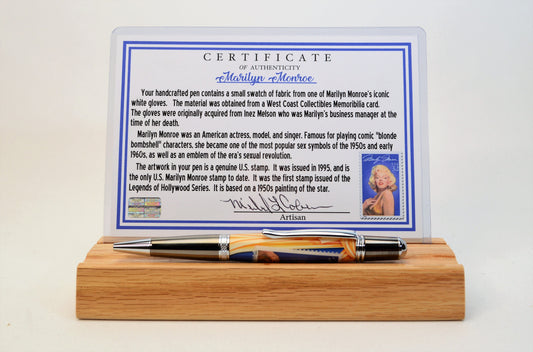 CERTIFICATE
OF AUTHENTICITY
Marilyn Monroe
Your handcrafted pen contains a small swatch of fabric from one of Marilyn Monroe's iconic
white gloves. The material was obtained from a West Coast Collectibles Memoribilia card.
The gloves were originally purchased from Inez Melson who was Marilyn's business manager at the
time of her death.
Marilyn Monroe was an American actress, model, and singer. Famous for playing comic "blonde
bombshell" characters, she became one of the most popular sex symbols of the 1950s and early
1960s, as well as an emblem of the era's sexual revolution.
The artwork in your pen is a genuine U.S. stamp. It was issued in 1995, and is
the only U.S. Marilyn Monroe stamp to date. It was the first stamp issued of the
Legends of Hollywood Series. It is based on a 1950s painting of the star.
Artisan